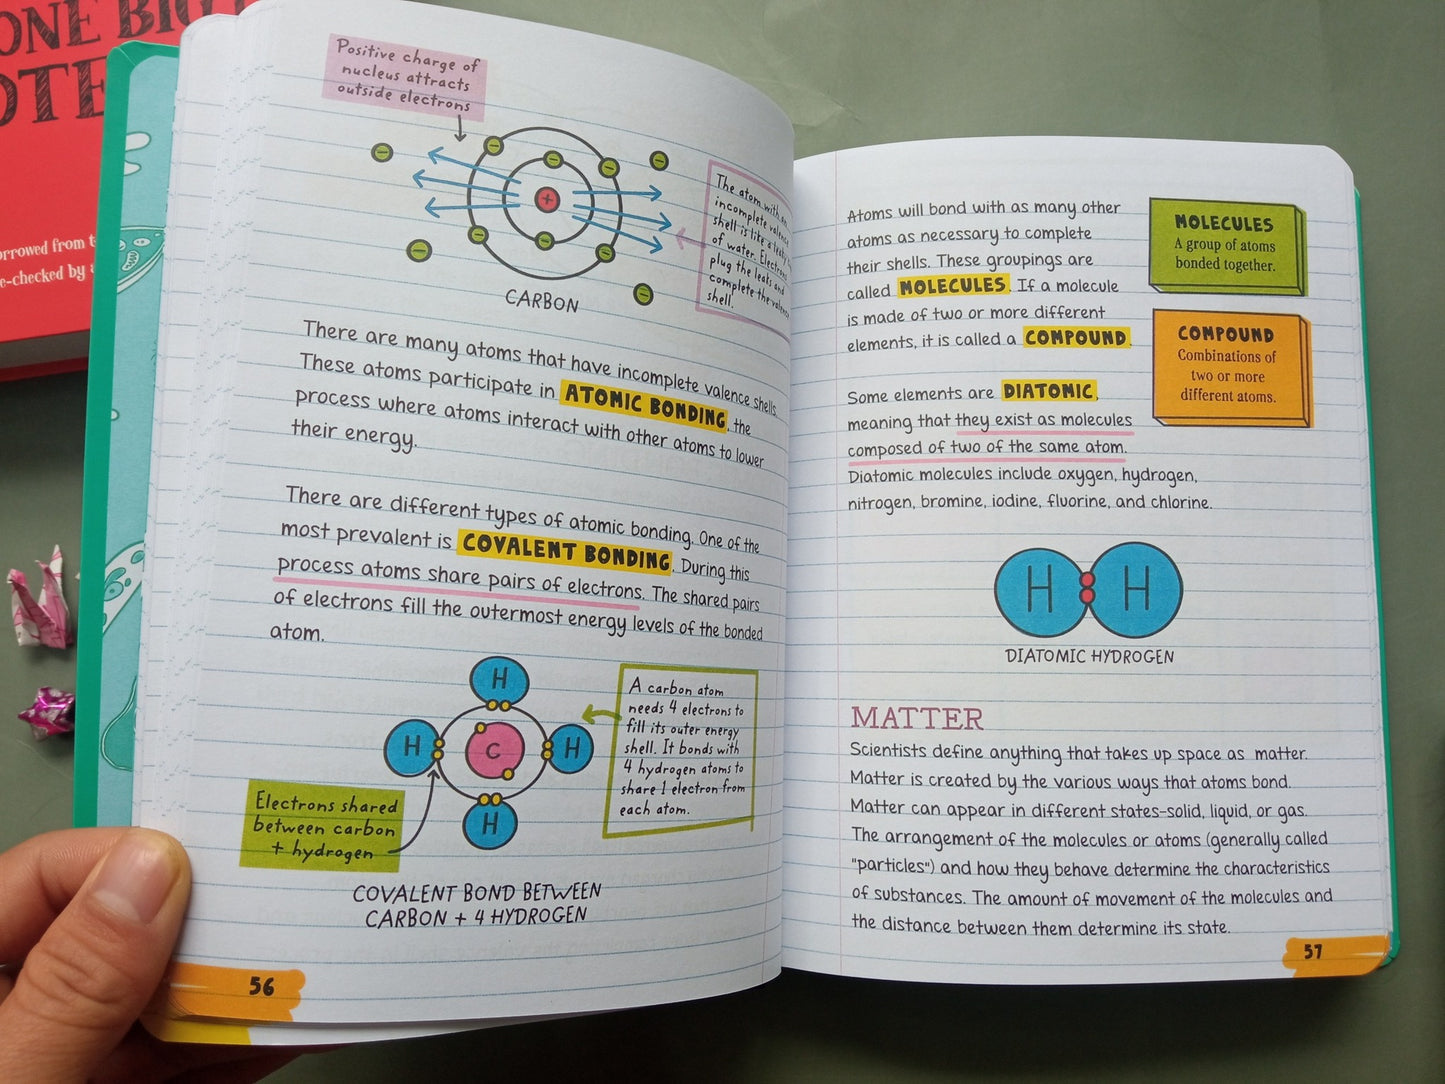 ONE BIG
OTE
orrowed from
e-checked by
Positive charge of
nucleus attracts
outside electrons
−
−
−
−
−
−
−
−
−
−
+
The atom with an
incomplete valence
shell is like a leaky
of water. Electrons
plug the leaks and
complete the valence
shell.
CARBON
There are many atoms that have incomplete valence shells.
These atoms participate in ATOMIC BONDING, the
process where atoms interact with other atoms to lower
their energy.
There are different types of atomic bonding. One of the
most prevalent is COVALENT BONDING. During this
process atoms share pairs of electrons. The shared pairs
of electrons fill the outermost energy levels of the bonded
atom.
H
H
C
H
H
A carbon atom
needs 4 electrons to
fill its outer energy
shell. It bonds with
4 hydrogen atoms to
share 1 electron from
each atom.
Electrons shared
between carbon
+ hydrogen
COVALENT BOND BETWEEN
CARBON + 4 HYDROGEN
56
Atoms will bond with as many other
atoms as necessary to complete
their shells. These groupings are
called MOLECULES. If a molecule
is made of two or more different
elements, it is called a COMPOUND.
MOLECULES
A group of atoms
bonded together.
COMPOUND
Combinations of
two or more
different atoms.
Some elements are DIATOMIC,
meaning that they exist as molecules
composed of two of the same atom.
Diatomic molecules include oxygen, hydrogen,
nitrogen, bromine, iodine, fluorine, and chlorine.
H H
DIATOMIC HYDROGEN
MATTER
Scientists define anything that takes up space as matter.
Matter is created by the various ways that atoms bond.
Matter can appear in different states–solid, liquid, or gas.
The arrangement of the molecules or atoms (generally called
"particles") and how they behave determine the characteristics
of substances. The amount of movement of the molecules and
the distance between them determine its state.
57